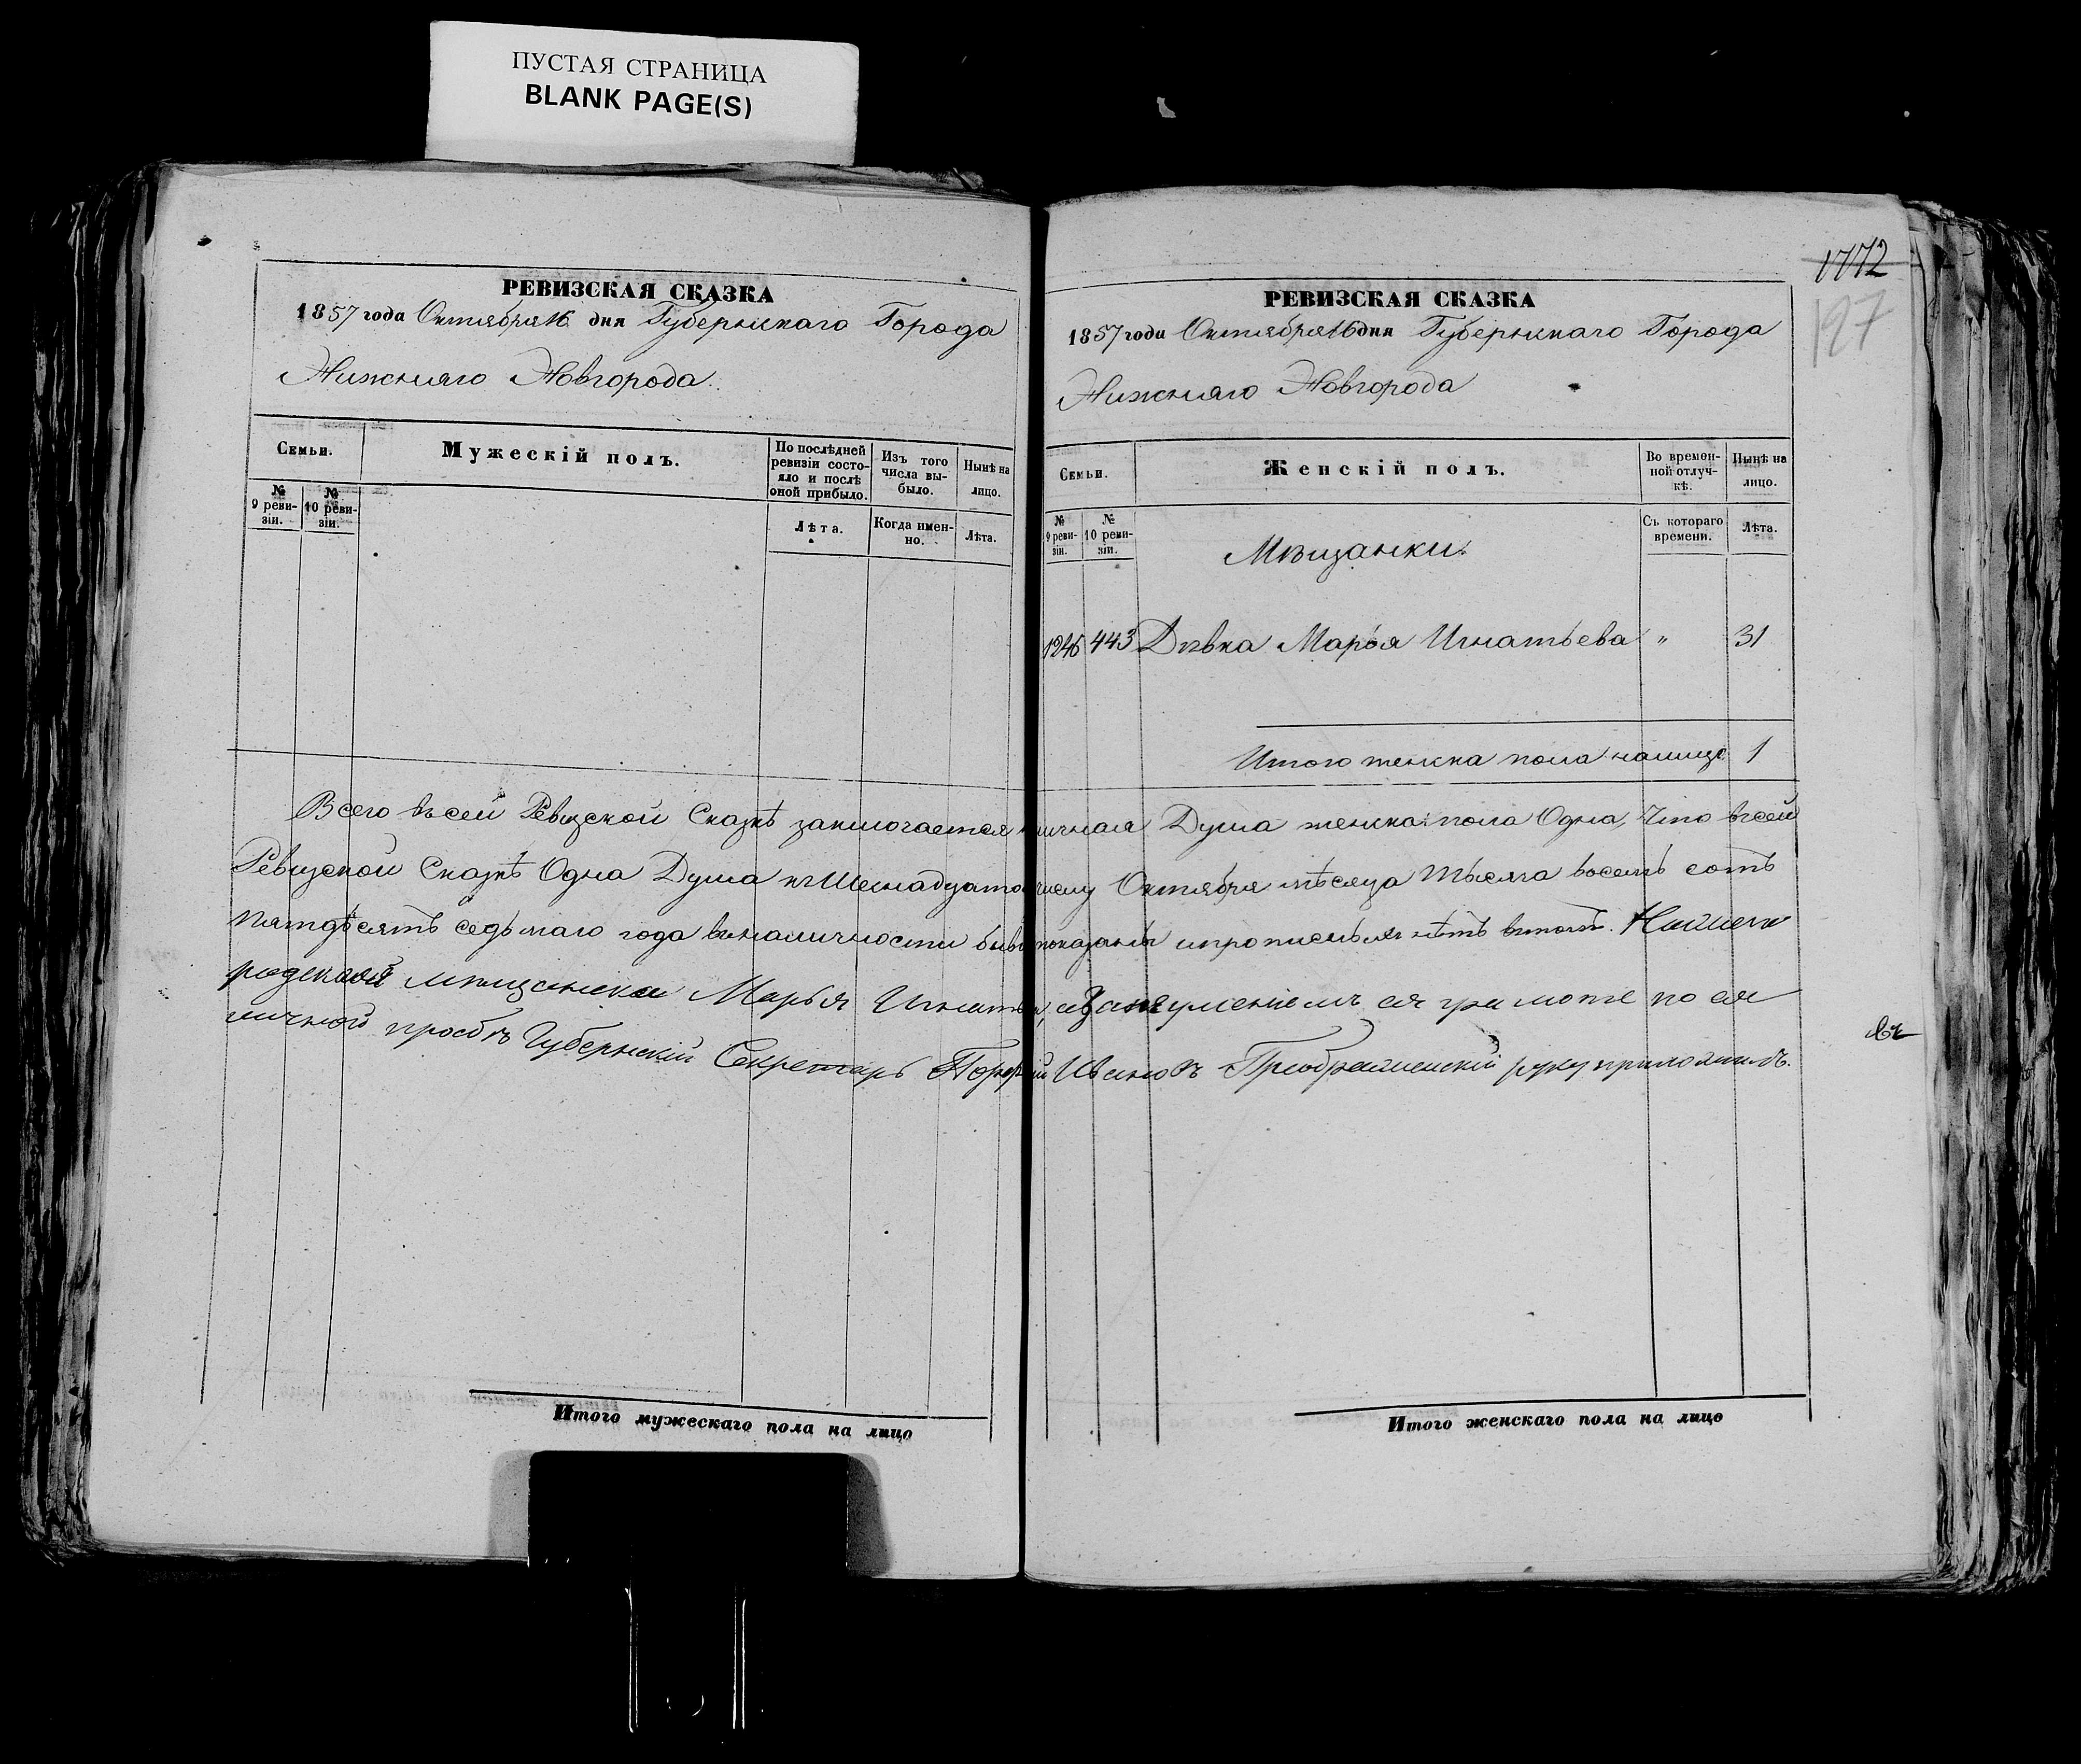 ПУСТАЯ СТРАНИЦА
BLANK PAGE(S)
РЕВИЗСКАЯ СКАЗКА
1857 года Октября 16 дня Губернскаго Города
Нижняго Новгорода.
Семьи.
Мужескій полъ.
По послѣдней ревизіи состояло и послѣ оной прибыло.
Изъ того числа выбыло.
Нынѣ на лицо.
№ 9 ревизіи.
№ 10 ревизіи.
Лѣта.
Когда именно.
Лѣта.
1772
197
РЕВИЗСКАЯ СКАЗКА
1857 года Октября 16 дня Губернскаго Города
Нижняго Новгорода
Семьи.
Женскій полъ.
Во временной отлучкѣ.
Нынѣ на лицо.
№ 9 ревизіи.
№ 10 ревизіи.
Съ котораго времени.
Лѣта.
Мѣщанки.
1246 443 Дѣвка Марья Игнатьева " 31
Итого женска пола налицо 1
Всего въ сей Ревизской Сказкѣ заключается личная Душа женска: пола Одна, Что въ сей
Ревизской Сказкѣ Одна Душа къ Шеснадцатому числу Октября мѣсяца Тысяча восемь сотъ
пятдѣсятъ седьмаго года въ наличности показаны и нѣтъ въ томъ. Нижего
родская мѣщанска Марья Игнатьева, а за неуменіемъ ея грамоте по ея
личной прозбѣ Губернскій Секретарь Ивановъ Преображенскій руку приложилъ.
Итого мужескаго пола на лицо
Итого женскаго пола на лицо